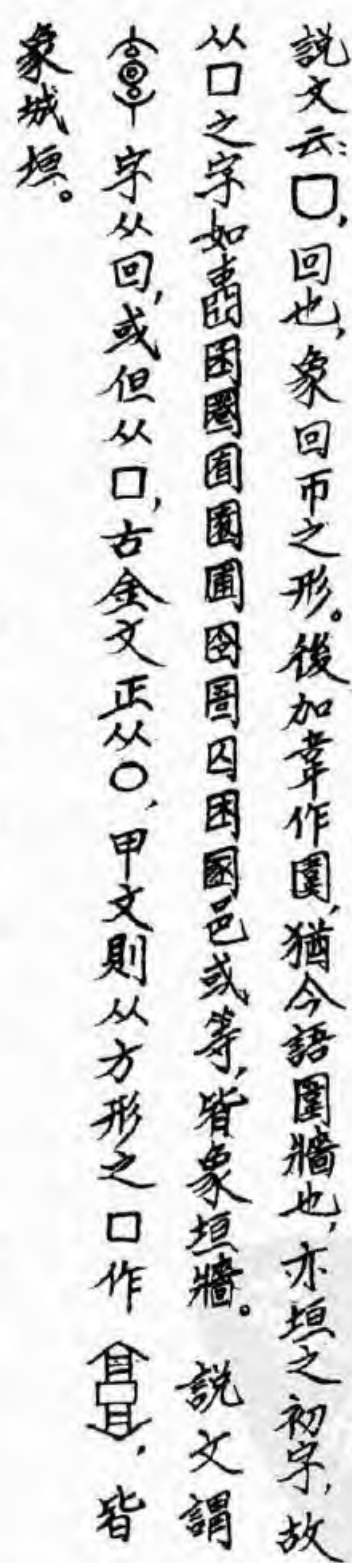 說文云:囗,回也,象回帀之形。後加韋作圍,猶今語圍牆也,亦垣之初字,故
从囗之字如囷圈囿園圃囹圄囚困圂邑或等,皆象垣牆。 說文謂
字从回,或但从囗,古金文正从○,甲文則从方形之囗作,皆
象城垣。